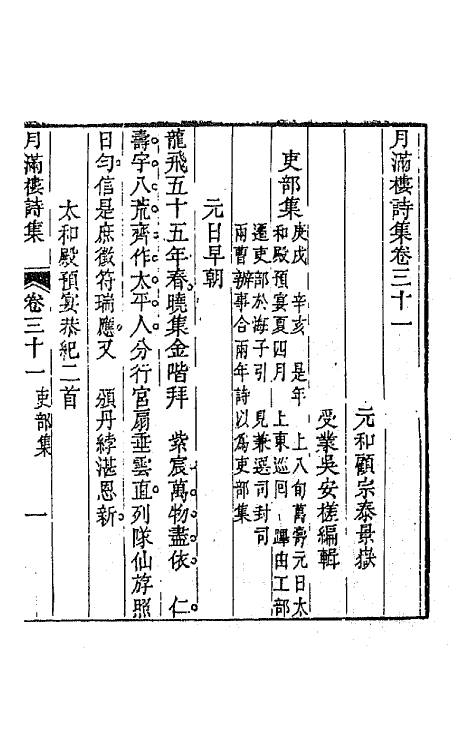 月滿樓詩集卷三十一
元和顧宗泰景嶽
受業吳安槎編輯
吏部集
庚戌 辛亥 是年 上八旬萬壽元日太
和殿預宴夏四月 上東巡囘 蹕由工部
遷吏部於海子引 見兼選司封司
兩曹辦事合兩年詩以為吏部集
元日早朝
龍飛五十五年春曉集金階拜 紫宸萬物盡依 仁
壽宇八荒齊作太平人分行宮扇垂雲直列隊仙斿照
日勻信是庶徵符瑞應又 頒丹綍湛恩新
太和殿預宴恭紀二首
月滿樓詩集 卷三十一 吏部集 一